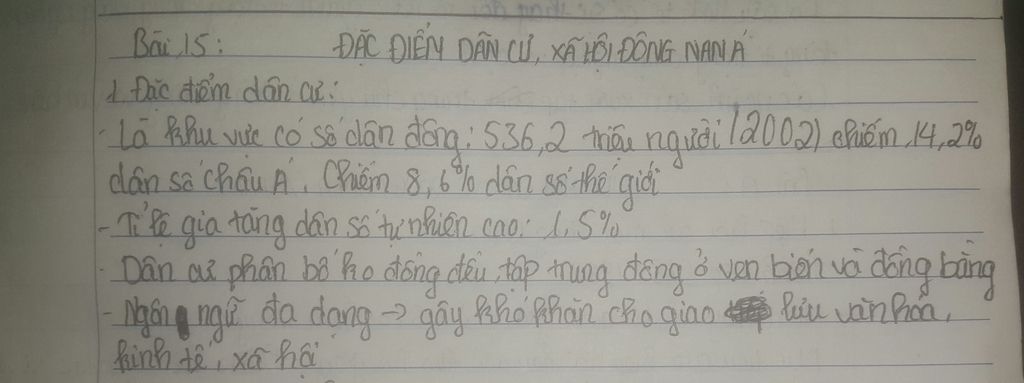 Bài 15: ĐẶC ĐIỂM DÂN CƯ, XÃ HỘI ĐÔNG NAM Á
1. Đặc điểm dân cư:
- Là khu vực có số dân đông: 536,2 triệu người (2002) chiếm 14,2%
dân số châu Á. Chiếm 8,6% dân số thế giới
- Tỉ lệ gia tăng dân số tự nhiên cao: 1,5%
- Dân cư phân bố ko đồng đều, tập trung đông ở ven biển và đồng bằng
- Ngôn ngữ đa dạng -> gây khó khăn cho giao lưu văn hóa,
kinh tế, xã hội